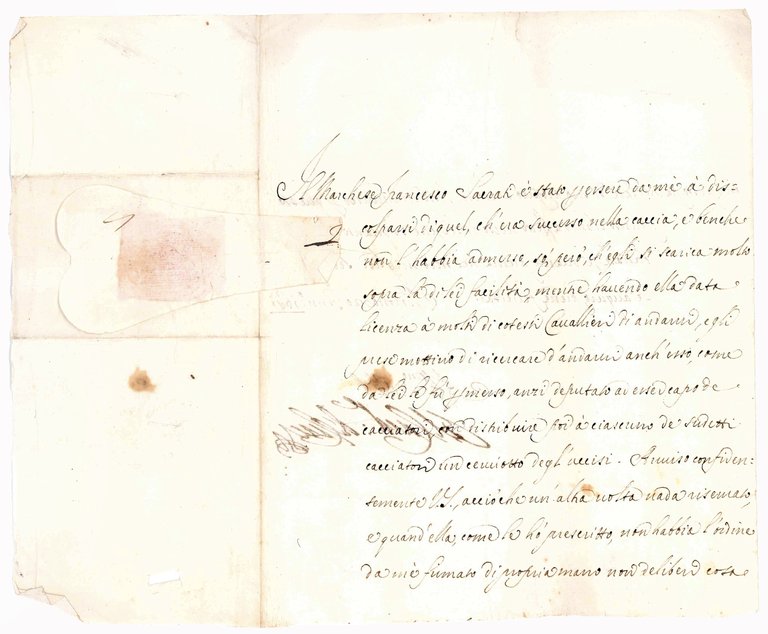 Il Marchese Francesco Sacrati è stato per sere da mè à dis=
colparsi di quel, ch'era successo nella caccia, e benche
non l'habbia admesso, sò però, ch'egli si scarica molto
sopra la di lei facilità, mentre havendo ella data
licenza à molti di cotesti Cavallieri di andarvi, egli
prese mottivo di ricercare d'andarvi anch'esso, come
da lei le fù permesso, anzi deputato ad esser capo de
cacciatori, con distribuire poi à ciascuno de sudetti
cacciatori un cerviotto degl'uccisi. Avviso confiden=
temente V.S., acciò che un'altra volta vada riservato,
e quand'ella, come le hò prescritto, non habbia l'ordine
da mè firmato di propria mano non deliberi cosa